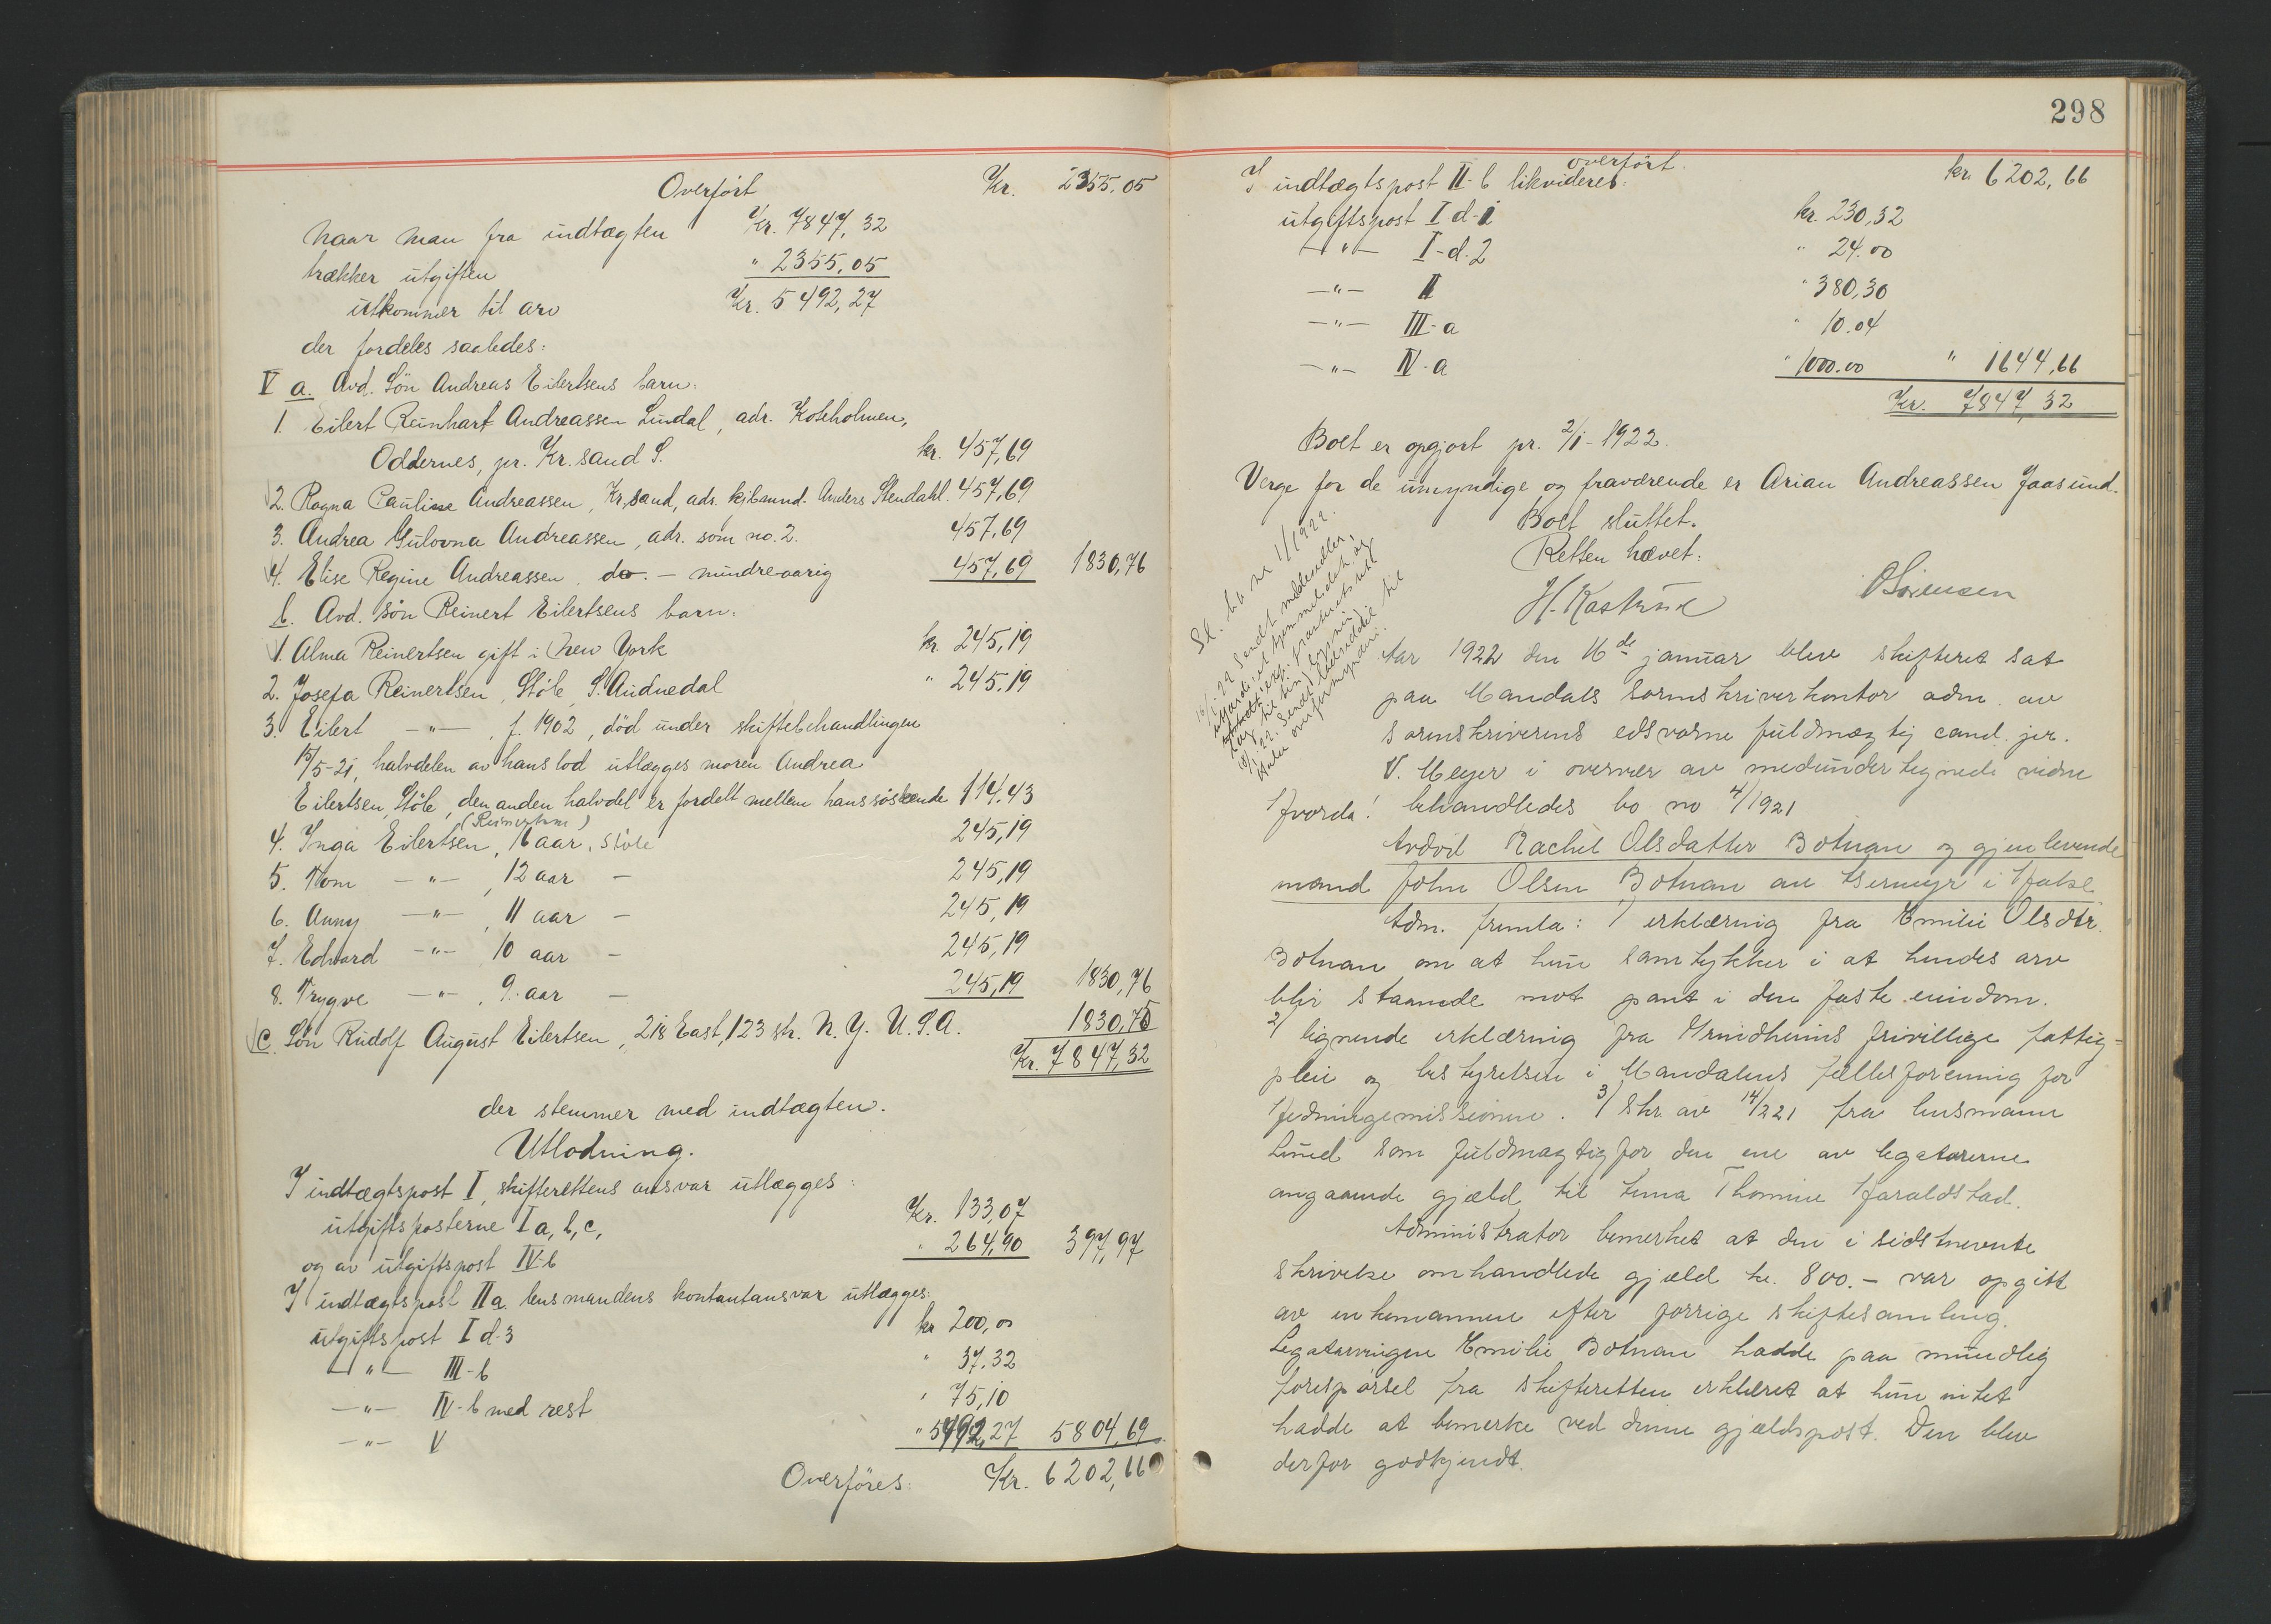 Overført Kr. 2355.05
Naar man fra indtægten Kr. 7847,32
trækker utgiften " 2355,05
utkommer til arv Kr. 5492,27
der fordeles saaledes:
V a. Avd. Søn Andreas Eilertsens barn:
1. Eilert Reinhart Andreassen Lindal, adr. Kolsholmen,
Oddernes, pr. Kr.sand S. kr. 457,69
2. Ragna Pauline Andreassen, Kr.sand, adr. kjbmnd. Anders Stendahl. 457,69
3. Andrea Gulovna Andreassen, adr. som no. 2. 457,69
4. Elise Regine Andreassen, do. - mindreaarig 457,69 1830,76
b. Avd. søn Reinert Eilertsens barn:
1. Alma Reinertsen gift i New York kr. 245,19
2. Josefa Reinertsen, Støle, S. Audnedal " 245,19
3. Eilert -"- , f. 1902, død under skiftebehandlingen
15/5-21, halvdelen av hans lod utlægges moren Andrea
Eilertsen, Støle, den anden halvdel er fordelt mellem hans søskende 114,43
(Reinertsen)
4. Inga Eilertsen, 16 aar, Støle 245,19
5. Tom -"- , 12 aar - 245,19
6. Anny -"- , 11 aar - 245,19
7. Edvard -"- 10 aar - 245,19
8. Trygve -"- , 9 aar - 245,19 1830,76
c. Søn Rudolf August Eilertsen, 218 East, 123 str. N.Y. U.S.A. 1830,75
Kr. 7847,32
der stemmer med indtægten.
Utlodning.
I indtægtspost I, skifterettens ansvar utlægges:
utgiftsposterne I a, b, c, Kr. 133,07
og av utgiftspost IV-b " 264,90 397,97
I indtægtspost II a. lensmandens kontantansvar utlægges:
utgiftspost I d-3 kr 200,00
-"- III-b " 37.32
-"- IV-b med rest " 75,10
-"- V " 5492,27 5804,69
Overføres: Kr. 6202,66
298
overført.
I indtægtspost II-b likvideres: kr. 6202,66
utgiftspost I d-1 kr. 230,32
-"- I-d.2 " 24.00
-"- II " 380,30
-"- III-a " 10.04
-"- IV-a " 1000.00 " 1644,66
Kr. 7847,32
Boet er opgjort pr. 2/1-1922.
Verge for de umyndige og fraværende er Arian Andreassen Jaasund.
Boet sluttet.
Retten hævet:
O Sørensen
Sl. bo nr 1/1922.
Aar 1922 den 16de januar blev skifteret sat
paa Mandals sorenskriverkontor adm. av
sorenskriverens edsvorne fuldmægtig cand. jur.
V. Meyer i overvær av medundertegnede vidne
Hvorda! behandledes bo no 4/1921
Avdød Rachel Olsdatter Botnan og gjenlevende
mand John Olsen Botnan av i Halse
Adm. fremla: 1/ erklæring fra Emilie Olsdtr.
Botnan om at hun samtykker i at hendes arv
blir staaende mot pant i den faste eiendom.
2/ lignende erklæring fra Grindheims frivillige fattig-
pleie og bestyrelsen i Mandalens fællesforening for
Hedningemissionen. 3/ Skr. av 14/321 fra lensmann
Lund som fuldmægtig for den ene av legatarerne
angaaende gjæld til Anna Thomine Haraldstad.
Administrator bemerket at den i sidstnevnte
skrivelse omhandlede gjæld kr. 800.- var opgitt
av enkemannen efter forrige skiftesamling.
Legatarvingen Emilie Botnan hadde paa mundlig
forespørsel fra skifteretten erklæret at hun intet
hadde at bemerke ved denne gjældspost. Den blev
derfor godkjendt.